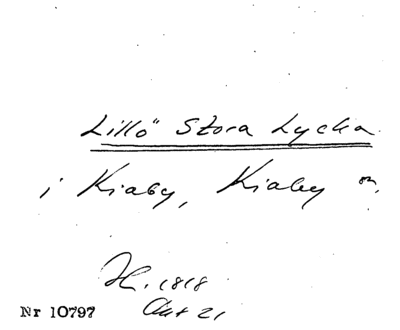 Lillö Stora Lycka
i Kiaby, Kiaby sn.
H. 1818
Akt 21
Nr 10797